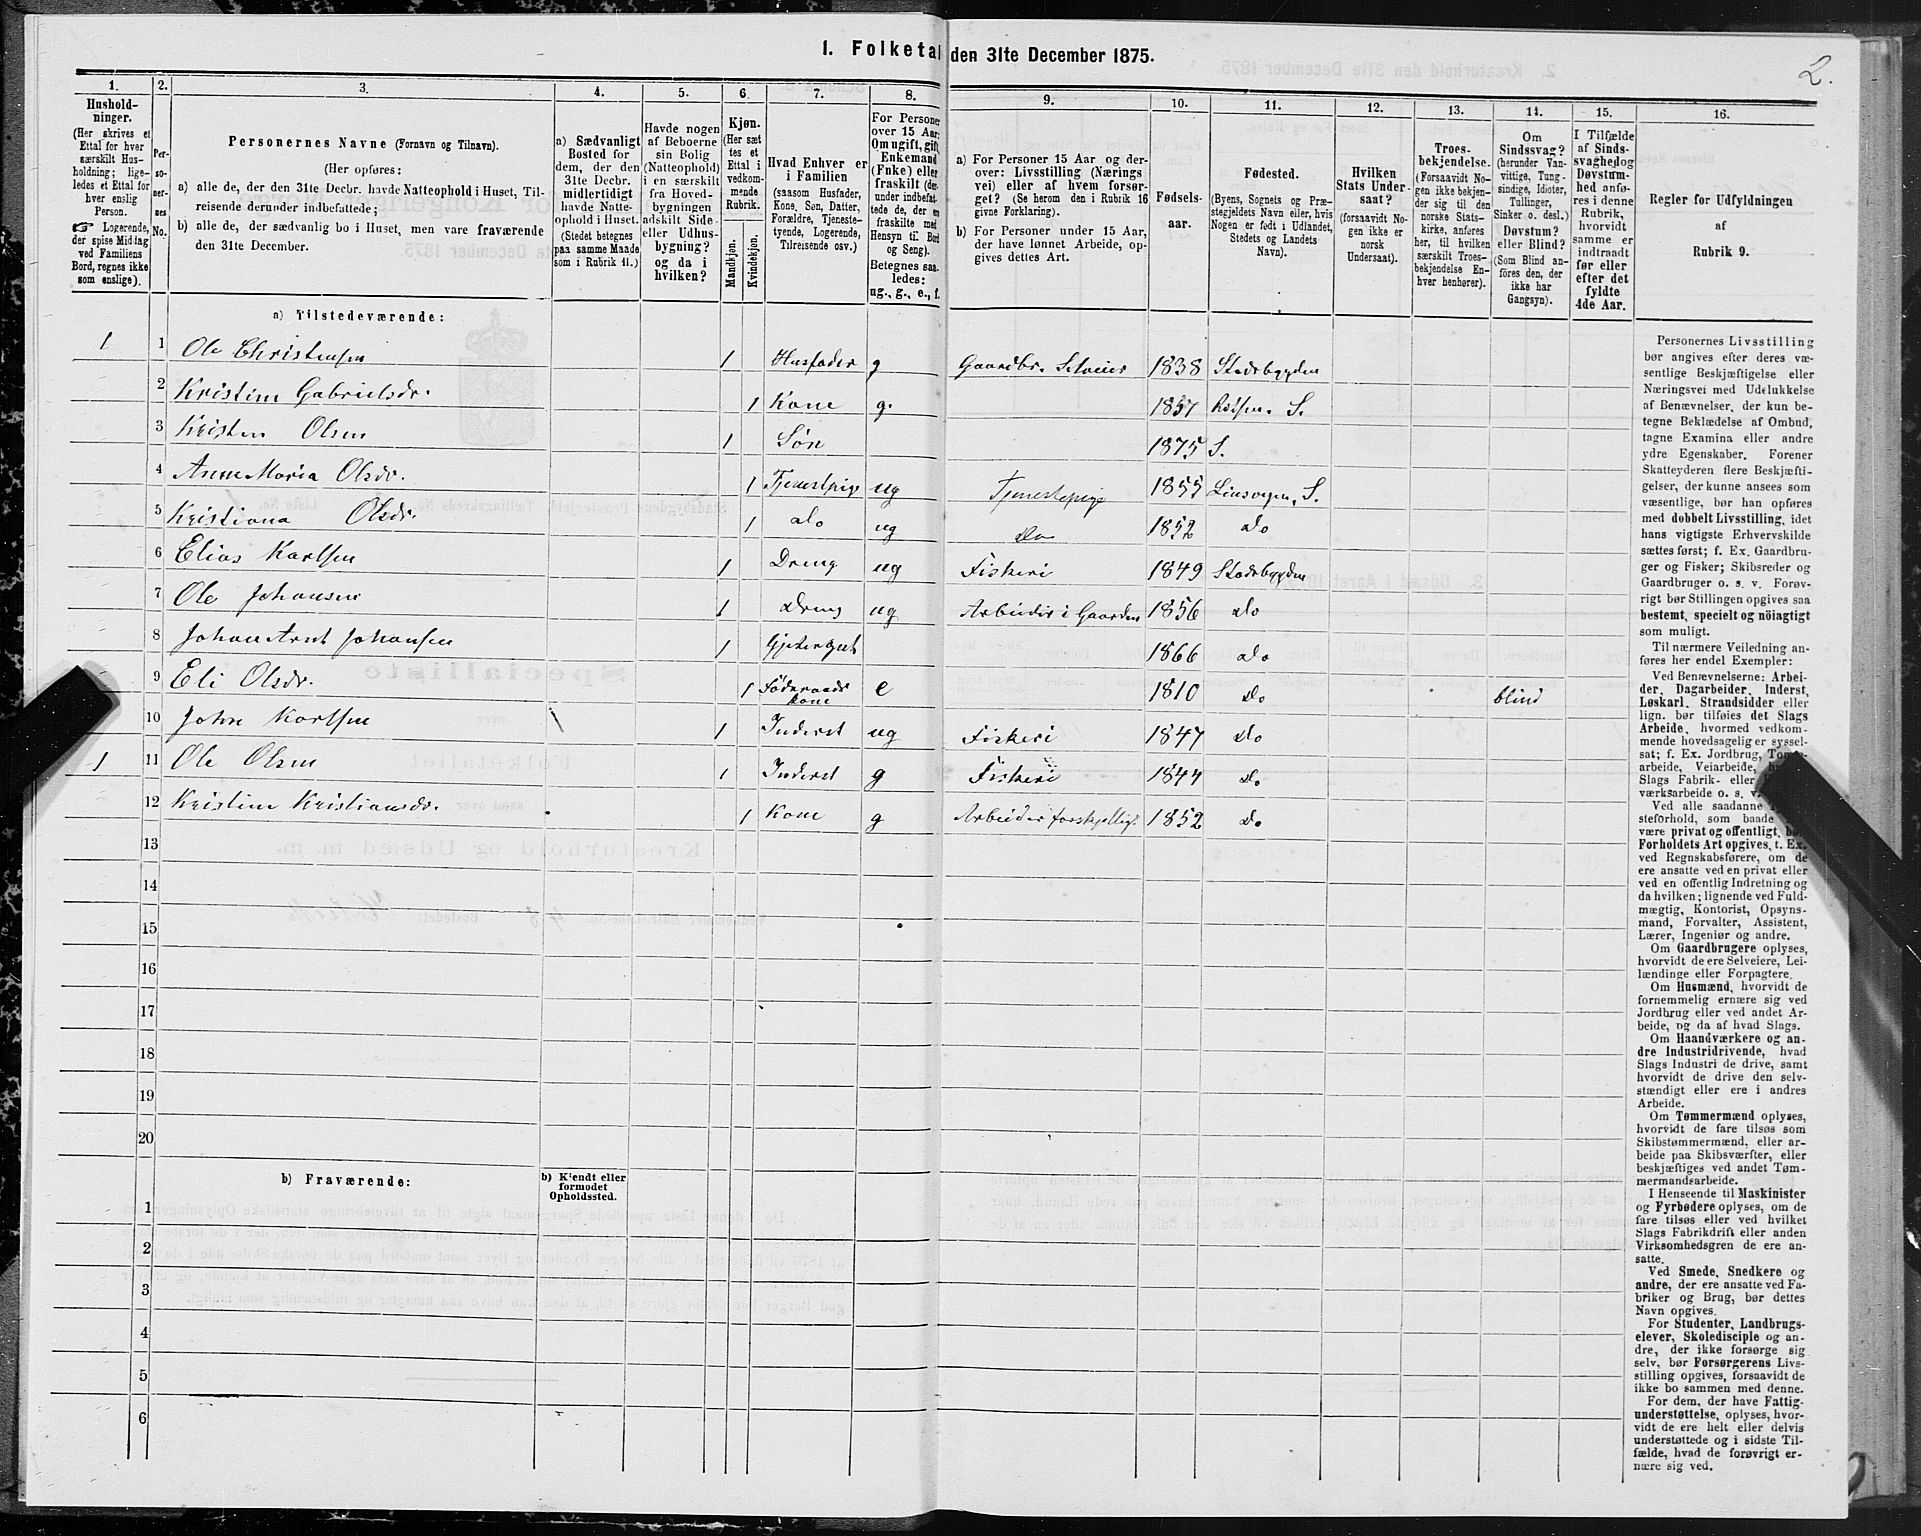 I. Folketal den 31te December 1875.
2.
1.
Hushold-
ninger.
(Her skrives et
Ettal for hver
særskilt Hus-
holdning; lige-
ledes et Ettal for
hver enslig
Person.
☞ Logerende,
der spise Middag
ved Familiens
Bord, regnes ikke
som enslige).
2.
Per-
so-
ner-
nes
No.
3.
Personernes Navne (Fornavn og Tilnavn).
(Her opføres:
a) alle de, der den 31te Decbr. havde Natteophold i Huset, Til-
reisende derunder indbefattede;
b) alle de, der sædvanlig bo i Huset, men vare fraværende
den 31te December.
4.
a) Sædvanligt
Bosted for
dem, der den
31te Decbr.
midlertidigt
havde Natte-
ophold i Huset.
(Stedet betegnes
paa samme Maade,
som i Rubrik 11.)
5.
Havde nogen
af Beboerne
sin Bolig
(Natteophold)
i en særskilt
fra Hoved-
bygningen
adskilt Side-
eller Udhus-
bygning?
og da i
hvilken?
6.
Kjøn.
(Her sæt-
tes et
Ettal i
vedkom-
mende
Rubrik.
Mandkjøn.
Kvindekjøn.
7.
Hvad Enhver er
i Familien
(saasom Husfader,
Kone, Søn, Datter,
Forældre, Tjeneste-
tyende, Logerende,
Tilreisende osv.)
8.
For Personer
over 15 Aar:
Om ugift, gift,
Enkemand
(Enke) eller
fraskilt (der-
under indbefat-
tede de, der er
fraskilte med
Hensyn til Bord
og Seng).
Betegnes saa-
ledes:
ug., g., e., f.
9.
a) For Personer 15 Aar og der-
over: Livsstilling (Nærings
vei) eller af hvem forsør-
get? (Se herom den i Rubrik 16
givne Forklaring).
b) For Personer under 15 Aar,
der have lønnet Arbeide, op-
gives dettes Art.
10.
Fødsels-
aar.
11.
Fødested.
(Byens, Sognets og Præ-
stegjeldets Navn eller, hvis
Nogen er født i Udlandet,
Stedets og Landets
Navn).
12.
Hvilken
Stats Under-
saat?
(forsaavidt No-
gen ikke er
norsk
Undersaat).
13.
Troes-
bekjendelse.
(Forsaavidt No-
gen ikke bekjen-
der sig til den
norske Stats-
kirke, anføres
her, til hvilken
særskilt Troes-
bekjendelse En-
hver henhører).
14.
Om
Sindssvag?
(herunder Van-
vittige, Tung-
sindige, Idioter,
Tullinger,
Sinker o. desl.)
Døvstum?
eller Blind?
(Som Blind an-
føres den, der
ikke har
Gangsyn).
15.
I Tilfælde
af Sinds-
svaghed og
Døvstum-
hed anfø-
res i denne
Rubrik,
hvorvidt
samme er
indtraadt
før eller
efter det
fyldte
4de Aar.
16.
Regler for Udfyldningen
af
Rubrik 9.
a) Tilstedeværende:
1 1 Ole Christensen 1 Husfader g Gaardbr. Selveier 1838 Stadsbygden
2 Kristine Gabrielsdr. 1 Kone g. 1857 Rissen. S.
3 Kristen Olsen 1 Søn 1875 S.
4 Anne Maria Olsdr. 1 Tjenestpige ug Tjenestepige 1855 S.
5 Kristiana Olsdr. 1 do ug Do 1852 Do
6 Elias Karlsen 1 Dreng ug Fiskeri 1849 Stadsbygden
7 Ole Johansen 1 Dreng ug Arbeider i Gaarden 1856 Do
8 Johan Arnt Johansen 1 Gjetergut 1866 Do
9 Eli Olsdr. 1 Föderaads
kone e 1810 Do blind
10 John Karlsen 1 Inderst ug Fiskeri 1847 Do
1 11 Ole Olsen 1 Inderst g Fiskeri 1844 Do
12 Kristine Kristiansdr. 1 Kone g Arbeider forskjelligt 1852 Do
13
14
15
16
17
18
19
20
b) Fraværende:
b) Kjendt eller
formodet
Opholdssted.
1
2
3
4
5
6
Personernes Livsstilling
bør angives efter deres væ-
sentlige Beskjæftigelse eller
Næringsvei med Udelukkelse
af Benævnelser, der kun be-
tegne Beklædelse af Ombud,
tagne Examina eller andre
ydre Egenskaber. Forener
Skatteyderen flere Beskjæfti-
gelser, der kunne ansees som
væsentlige, bør han opføres
med dobbelt Livsstilling, idet
hans vigtigste Erhvervskilde
sættes først; f. Ex. Gaardbru-
ger og Fisker; Skibsreder og
Gaardbruger o. s. v. Forøv-
rigt bør Stillingen opgives saa
bestemt, specielt og nöiagtigt
som muligt.
Til nærmere Veiledning an-
føres her endel Exempler:
Ved Benævnelserne: Arbei-
der, Dagarbeider, Inderst,
Løskarl, Strandsidder eller
lign. bør tilføies det Slags
Arbeide, hvormed vedkom-
mende hovedsagelig er syssel-
sat; f. Ex. Jordbrug, Tom
arbeide, Veiarbeide,
Slags Fabrik- eller
værksarbeide o. s. v.
Ved alle saadanne
steforhold, som baade
være privat og offentligt, bør
Forholdets Art opgives, t. Ex.
ved Regnskabsførere, om de
ere ansatte ved en privat eller
ved en offentlig Indretning og
da hvilken; lignende ved Fuld-
mægtig, Kontorist, Opsyns-
mand, Forvalter, Assistent,
Lærer, Ingeniør og andre.
Om Gaardbrugere oplyses,
hvorvidt de ere Selveiere, Lei-
lændinge eller Forpagtere.
Om Husmænd, hvorvidt de
fornemmelig ernære sig ved
Jordbrug eller ved andet Ar-
beide, og da af hvad Slags.
Om Haandværkere og an-
dre Industridrivende, hvad
Slags Industri de drive, samt
hvorvidt de drive den selv-
stændigt eller ere i andres
Arbeide.
Om Tømmermænd oplyses,
hvorvidt de fare tilsøs som
Skibstømmermænd, eller ar-
beide paa Skibsværfter, eller
beskjæftiges ved andet Tøm-
mermandsarbeide.
I Henseende til Maskinister
og Fyrbødere oplyses, om de
fare tilsøs eller ved hvilket
Slags Fabrikdrift eller anden
Virksomhedsgren de ere an-
satte.
Ved Smede, Snedkere og
andre, der ere ansatte ved Fa-
briker og Brug, bør dettes
Navn opgives.
For Studenter, Landbrugs-
elever, Skoledisciple og an-
dre, der ikke forsørge sig
selv, bør Forsørgerens Livs-
stilling opgives, forsaavidt de
ikke bo sammen med denne.
For dem, der have Fattig-
understøttelse, oplyses, hvor-
vidt de ere helt eller delvis
understøttede og i sidste Til-
fælde, hvad de forøvrigt er-
nære sig ved.